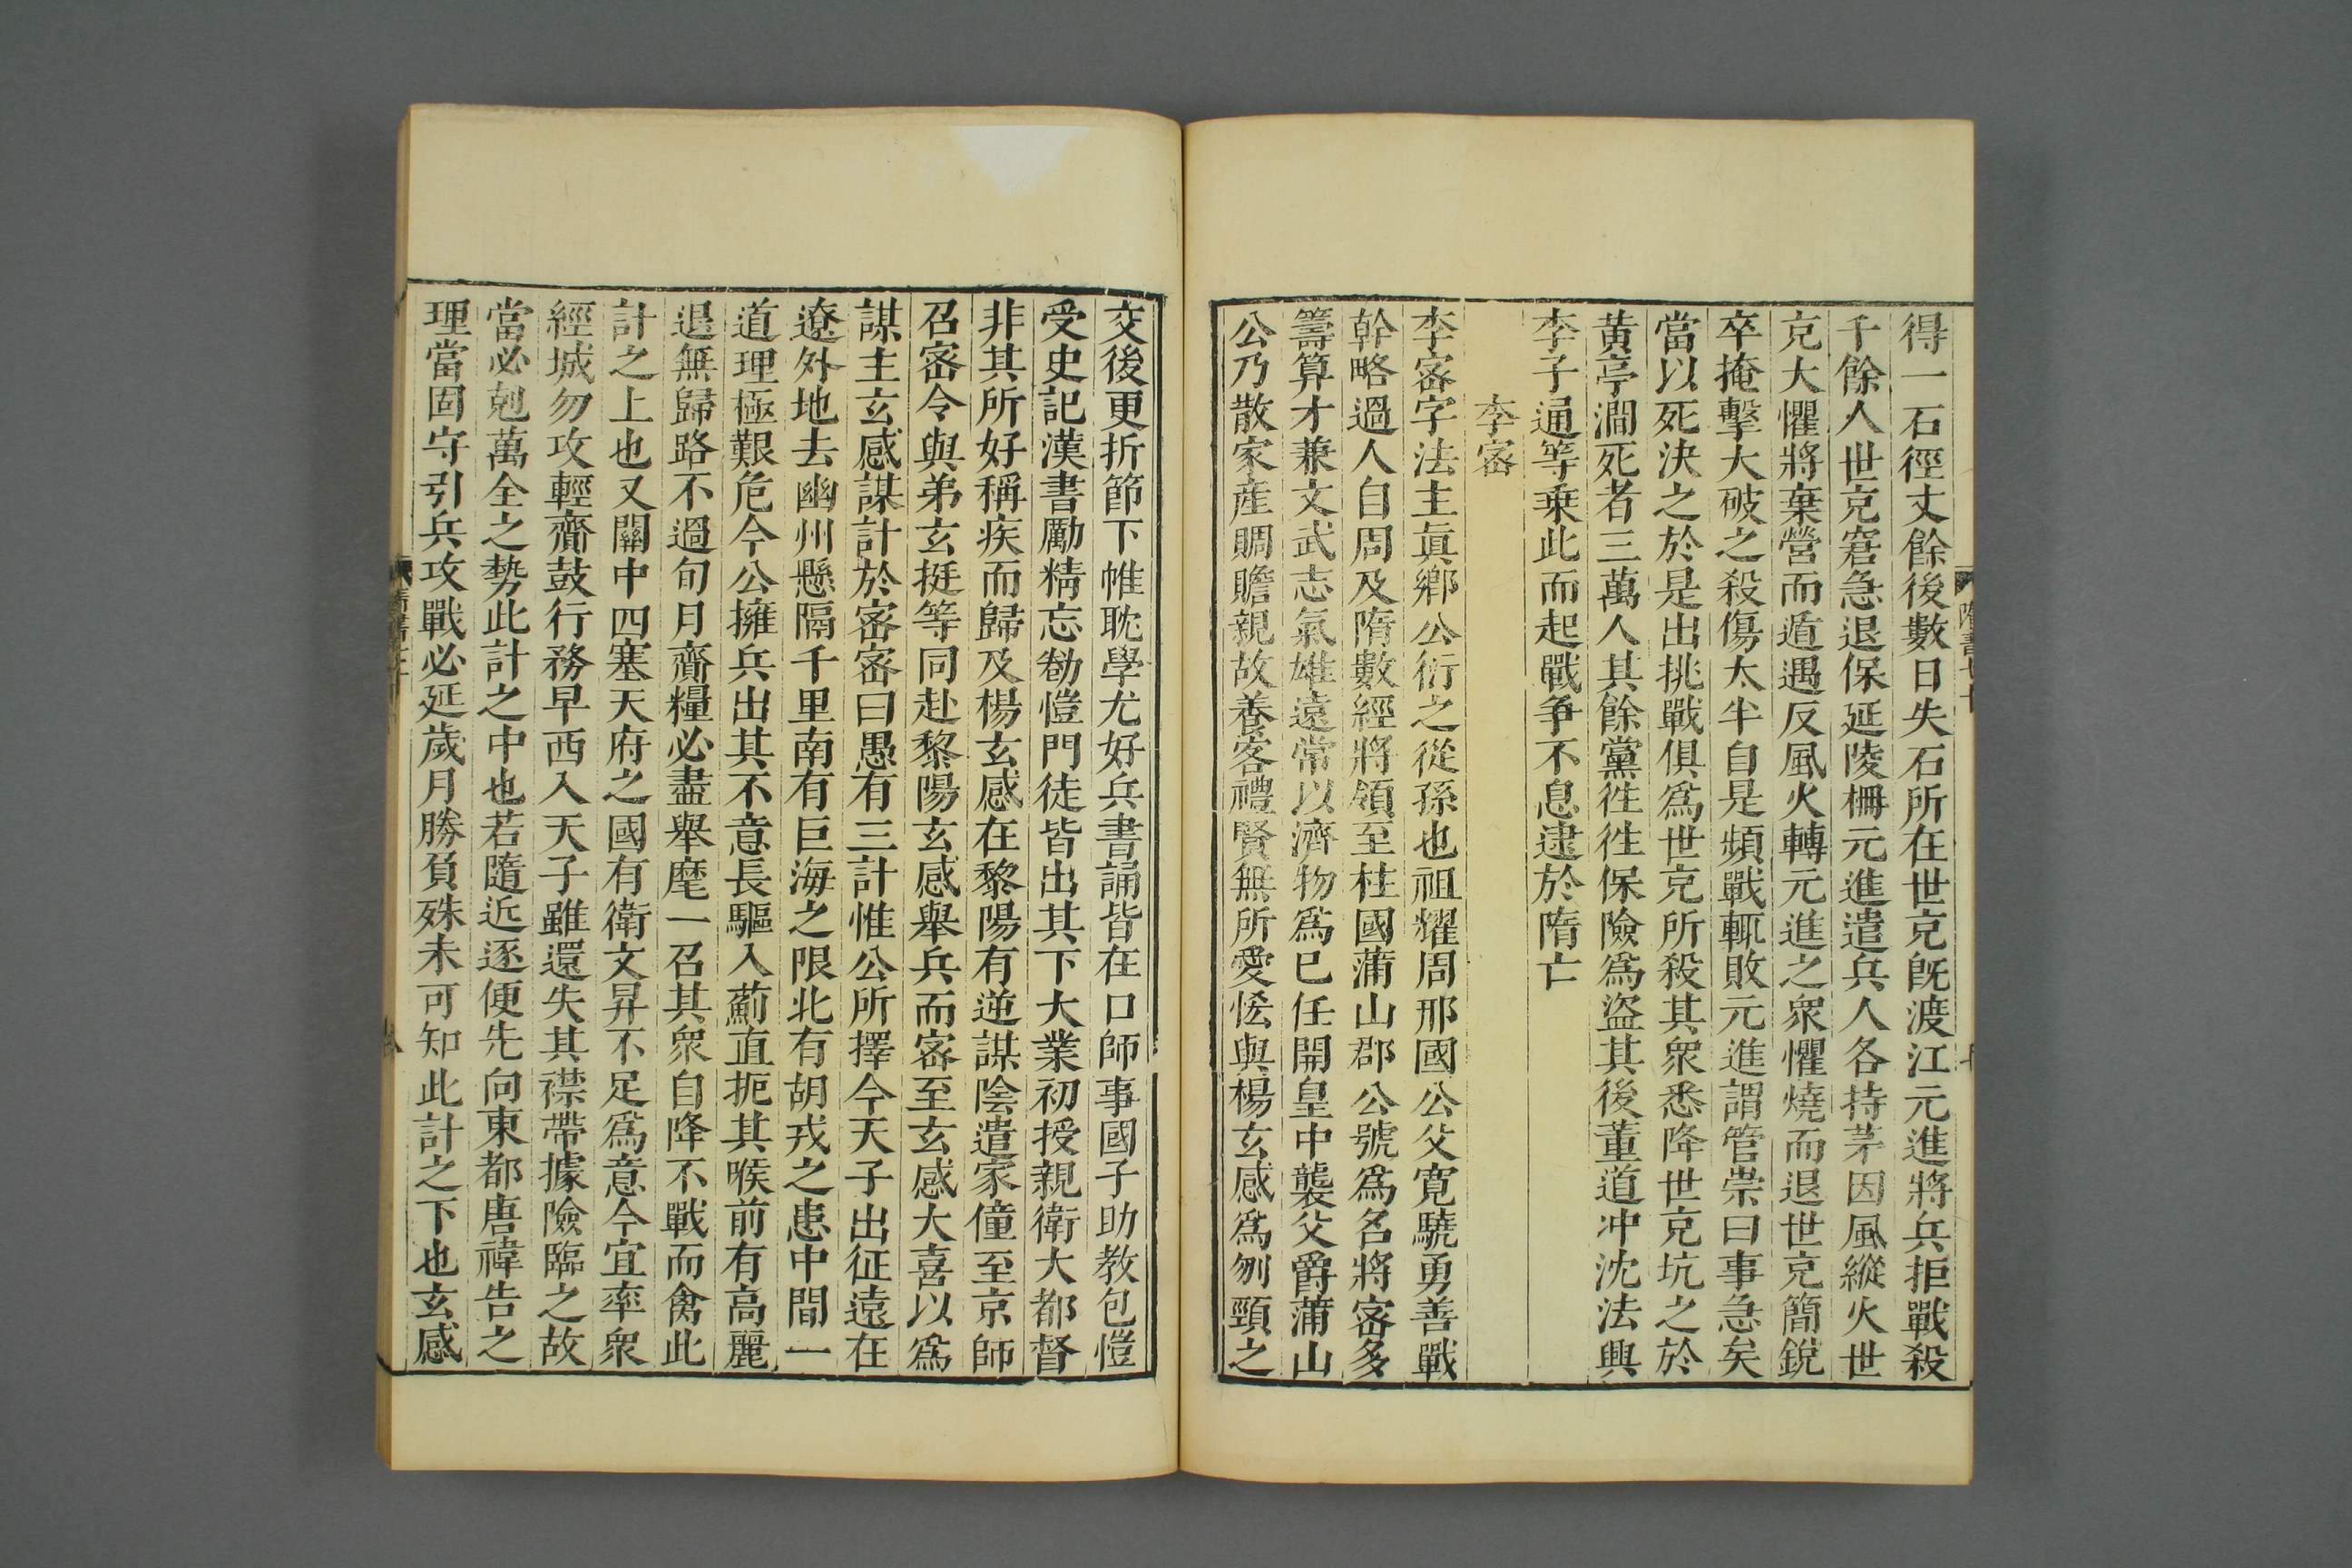 得一石徑丈餘後數日失石所在世充旣渡江元進將兵拒戰殺
千餘人世充窘急退保延陵柵元進遣兵人各持茅因風縱火世
充大懼將棄營而遁遇反風火轉元進之衆懼燒而退世充簡銳
卒掩擊大破之殺傷太半自是頻戰輒敗元進謂管崇曰事急矣
當以死決之於是出挑戰俱爲世充所殺其衆悉降世充坑之於
黃亭澗死者三萬人其餘黨往往保險爲盜其後董道冲沈法興
李子通等乗此而起戰爭不息逮於隋亡
李密
李密字法主眞鄉公衍之從孫也祖耀周邢國公父寛驍勇善戰
幹略過人自周及隋數經將領至柱國蒲山郡公號爲名將密多
籌算才兼文武志氣雄遠常以濟物爲已任開皇中襲父爵蒲山
公乃散家產賙贍親故養客禮賢無所愛恡與楊玄感爲刎頸之
交後更折節下帷耽學尤好兵書誦皆在口師事國子助教包愷
受史記漢書勵精忘勌愷門徒皆出其下大業初授親衛大都督
非其所好稱疾而歸及楊玄感在黎陽有逆謀陰遣家僮至京師
召密令與弟玄挺等同赴黎陽玄感舉兵而密至玄感大喜以爲
謀主玄感謀計於密密曰愚有三計惟公所擇今天子出征遠在
遼外地去幽州懸隔千里南有巨海之限北有胡戎之患中間一
道理極艱危今公擁兵出其不意長驅入薊直扼其喉前有高麗
退無歸路不過旬月齎糧必盡舉麾一召其衆自降不戰而禽此
計之上也又關中四塞天府之國有衛文昇不足爲意今宜率衆
經城勿攻輕齎鼓行務早西入天子雖還失其襟帶據險臨之故
當必剋萬全之勢此計之中也若隨近逐便先向東都唐禕告之
理當固守引兵攻戰必延歲月勝負殊未可知此計之下也玄感